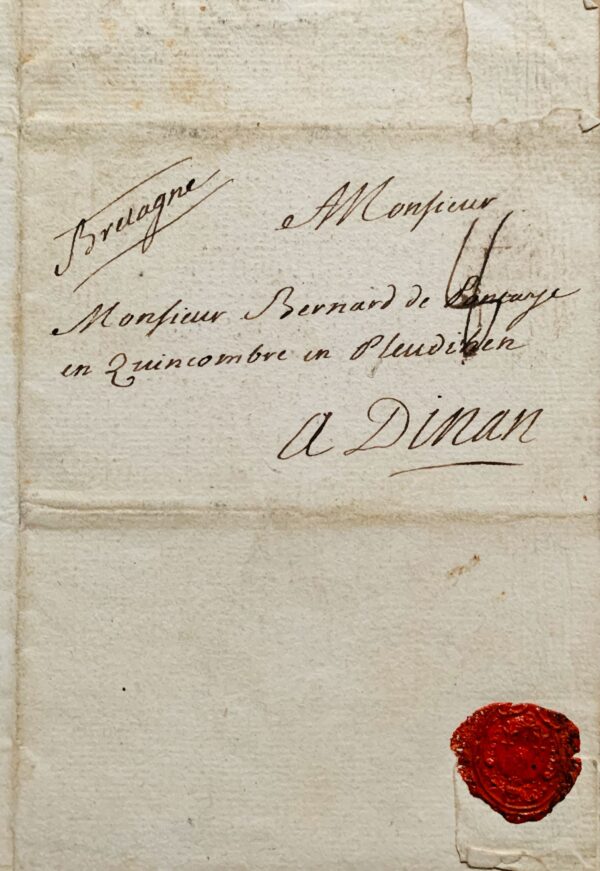 Bretagne
A Monsieur
Monsieur Bernard de
en Quincombre en Pleudihen
A Dinan